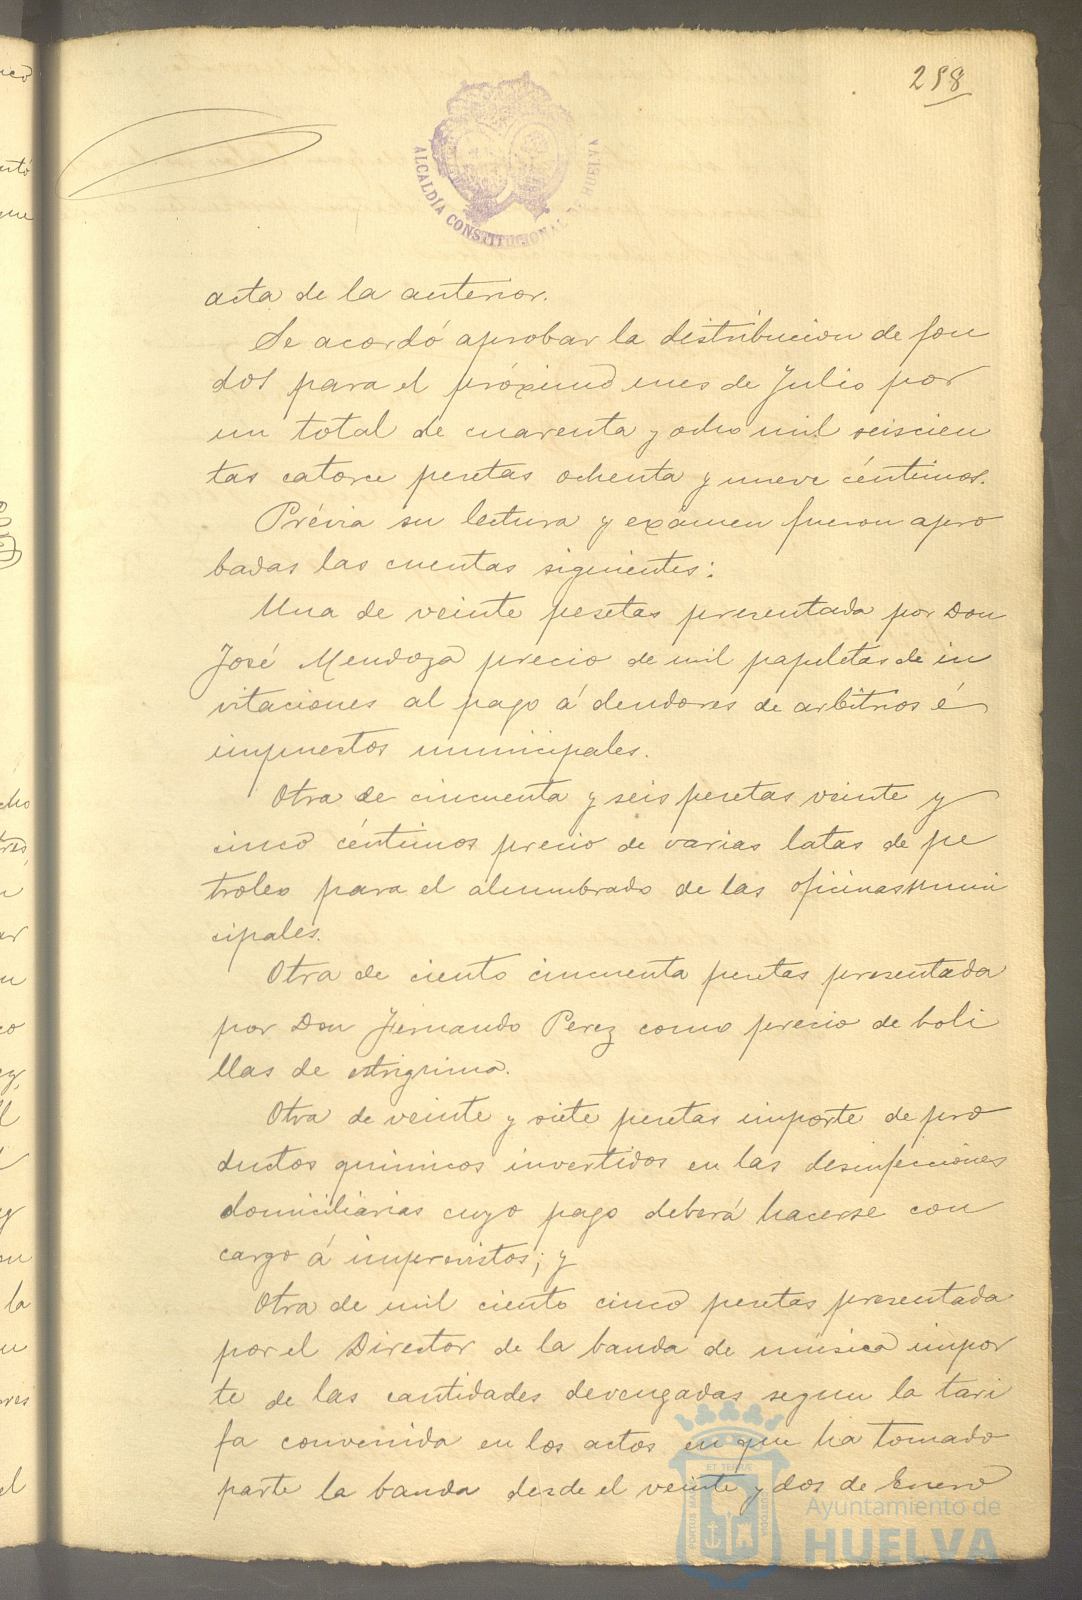 298
ALCALDÍA CONSTITUCIONAL DE HUELVA
acta de la anterior.
Se acordó aprobar la distribucion de fon
dos para el próximo mes de Julio por
un total de cuarenta y ocho mil seiscien
tas catorce pesetas ochenta y nueve céntimos.
Prévia su lectura y exámen fueron apro
badas las cuentas siguientes:
Una de veinte pesetas presentada por Don
José Mendoza precio de mil papeletas de in
vitaciones al pago á deudores de arbitrios é
impuestos municipales.
Otra de cincuenta y seis pesetas veinte y
cinco céntimos precio de varias latas de pe
troleo para el alumbrado de las oficinas muni
cipales.
Otra de ciento cincuenta pesetas presentada
por Don Fernando Perez como precio de boli
llas de estrignina.
Otra de veinte y siete pesetas importe de pro
ductos quimicos invertidos en las desinfecciones
domiciliarias cuyo pago deberá hacerse con
cargo á imprevistos; y
Otra de mil ciento cinco pesetas presentada
por el Director de la banda de música impor
te de las cantidades devengadas segun la tari
fa convenida en los actos en que ha tomado
parte la banda desde el veinte y dos de Enero
Ayuntamiento de
HUELVA